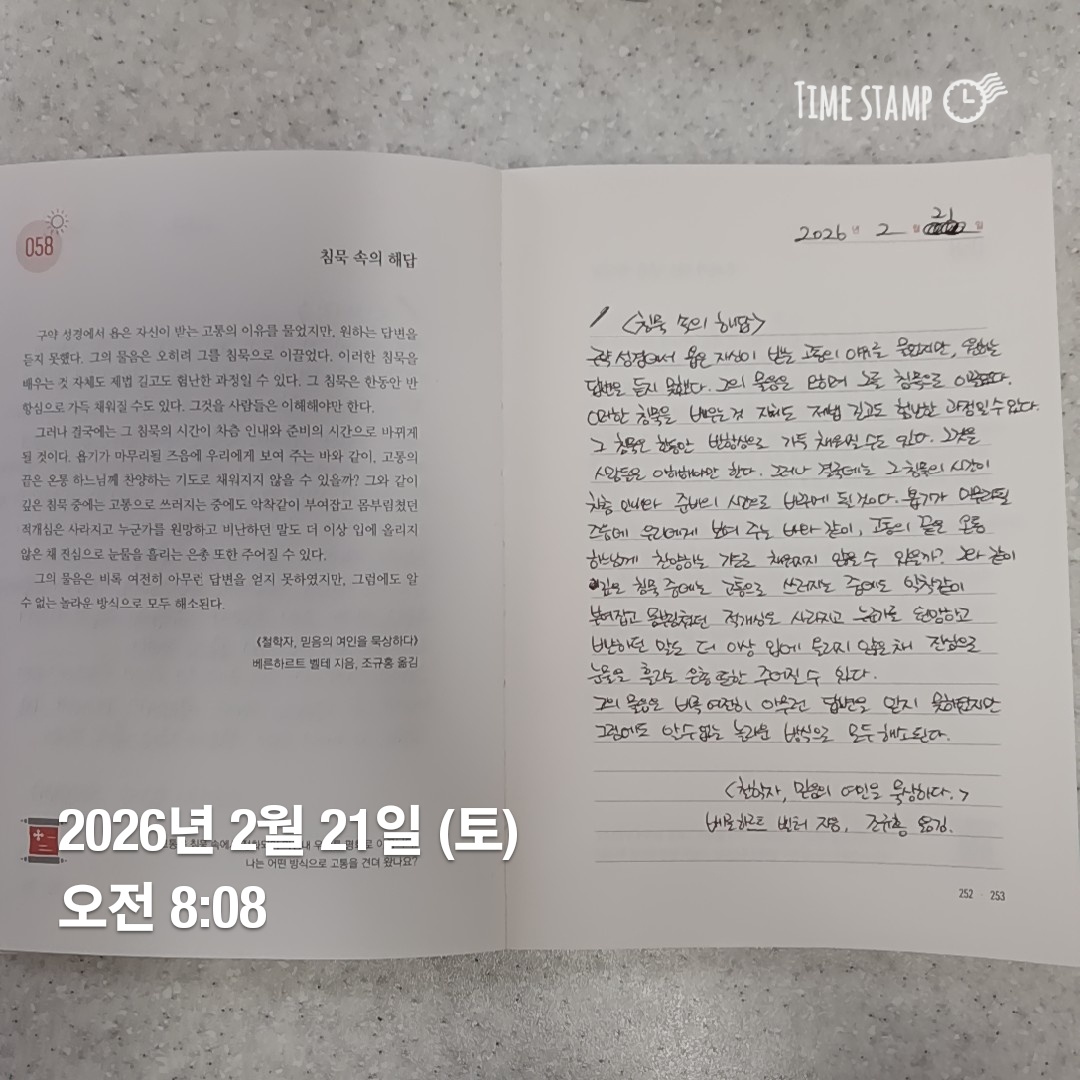 TIME STAMP
058
침묵 속의 해답
구약 성경에서 욥은 자신이 받는 고통의 이유를 물었지만, 원하는 답변을
듣지 못했다. 그의 물음은 오히려 그를 침묵으로 이끌었다. 이러한 침묵을
배우는 것 자체도 제법 길고도 험난한 과정일 수 있다. 그 침묵은 한동안 반
항심으로 가득 채워질 수도 있다. 그것을 사람들은 이해해야만 한다.
그러나 결국에는 그 침묵의 시간이 차츰 인내와 준비의 시간으로 바뀌게
될 것이다. 욥기가 마무리될 즈음에 우리에게 보여 주는 바와 같이, 고통의
끝은 온통 하느님께 찬양하는 기도로 채워지지 않을 수 있을까? 그와 같이
깊은 침묵 중에는 고통으로 쓰러지는 중에도 악착같이 부여잡고 몸부림쳤던
적개심은 사라지고 누군가를 원망하고 비난하던 말도 더 이상 입에 올리지
않은 채 진심으로 눈물을 흘리는 은총 또한 주어질 수 있다.
그의 물음은 비록 여전히 아무런 답변을 얻지 못하였지만, 그럼에도 알
수 없는 놀라운 방식으로 모두 해소된다.
《철학자, 믿음의 여인을 묵상하다》
베른하르트 벨테 지음, 조규홍 옮김
나는 어떤 방식으로 고통을 견뎌 왔나요?
2026년 2월 21일
<침묵 속의 해답>
구약 성경에서 욥은 자신이 받는 고통의 이유를 물었지만, 원하는
답변을 듣지 못했다. 그의 물음은 오히려 그를 침묵으로 이끌었다.
이러한 침묵을 배우는 것 자체도 제법 길고도 험난한 과정일 수 있다.
그 침묵은 한동안 반항심으로 가득 채워질 수도 있다. 그것을
사람들은 이해해야만 한다. 그러나 결국에는 그 침묵의 시간이
차츰 인내와 준비의 시간으로 바꾸게 될 것이다. 욥기가 마무리될
즈음에 우리에게 보여 주는 바와 같이, 고통의 끝은 온통
하느님께 찬양하는 기도로 채워지지 않을 수 있을까? 그와 같이
깊은 침묵 중에는 고통으로 쓰러지는 중에도 악착같이
부여잡고 몸부림쳤던 적개심은 사라지고 누군가를 원망하고
비난하던 말도 더 이상 입에 올리지 않은 채 진심으로
눈물을 흘리는 은총 또한 주어질 수 있다.
그의 물음은 비록 여전히 아무런 답변을 얻지 못하였지만
그럼에도 알 수 없는 놀라운 방식으로 모두 해소된다.
<철학자, 믿음의 여인을 묵상하다.>
베른하르트 벨테 지음, 조규홍 옮김.
252 · 253
2026년 2월 21일 (토)
오전 8:08